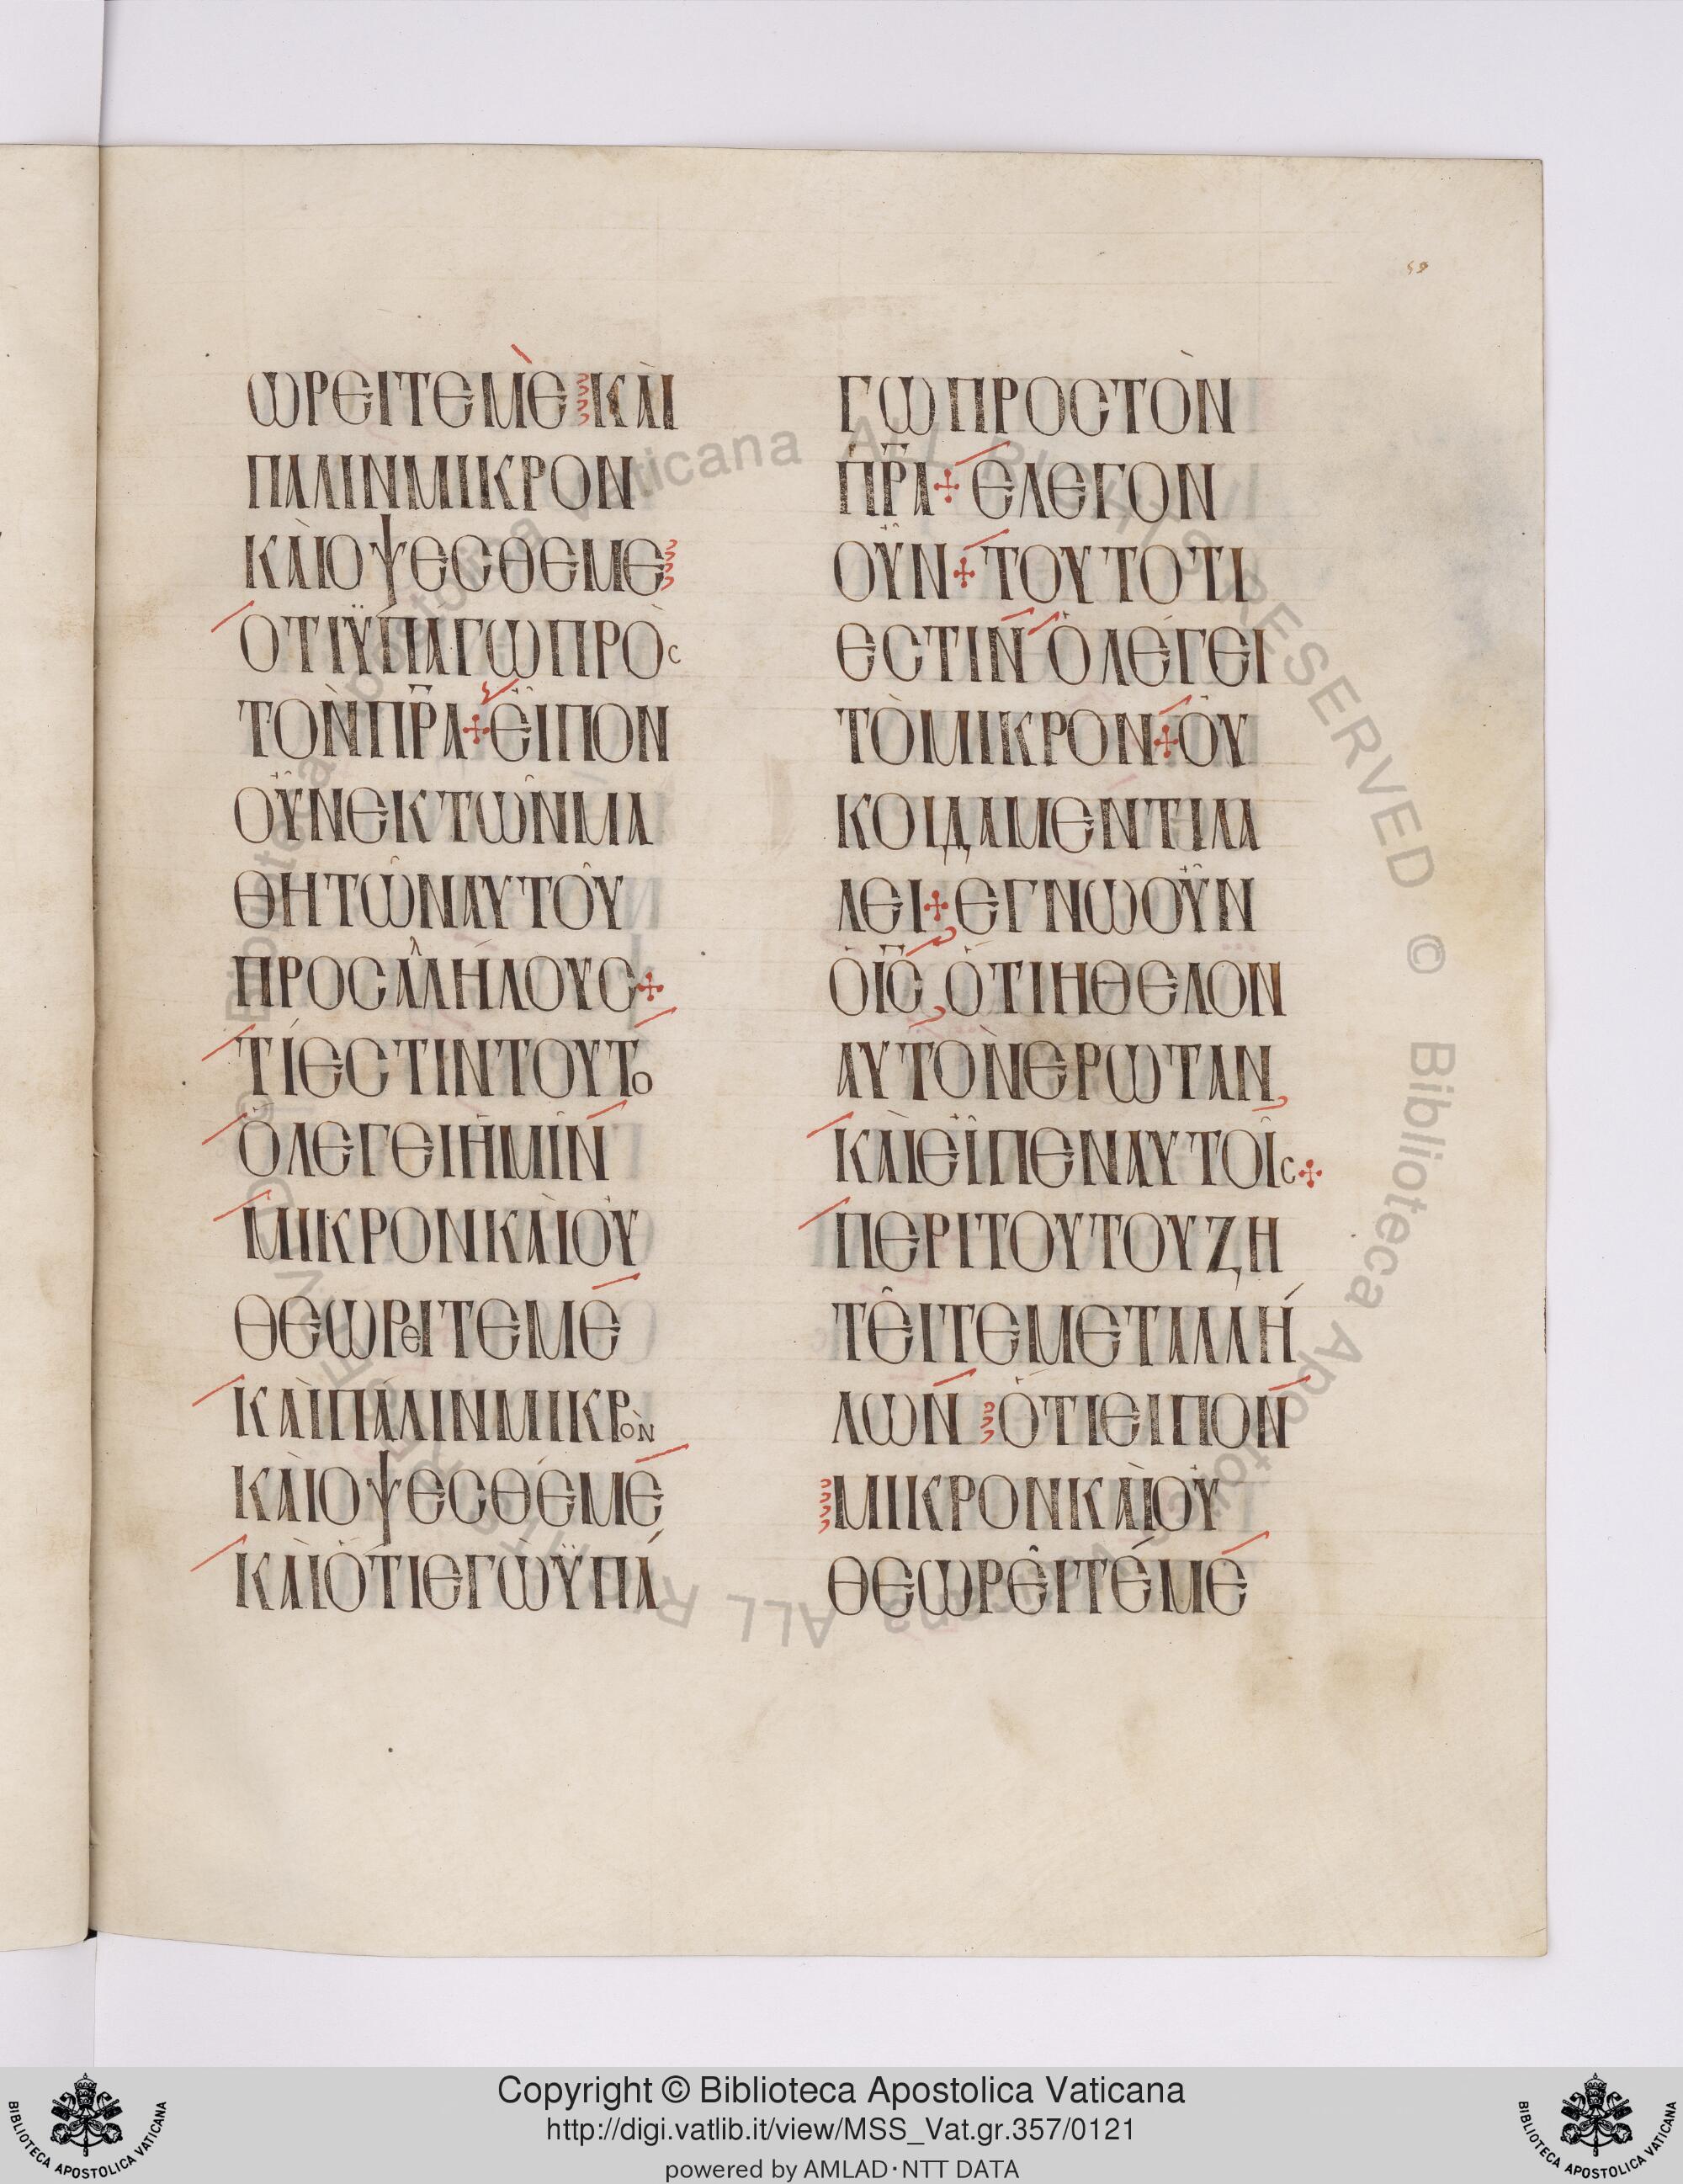 59
ΩΡΕΙΤΕΜὲ ΚΑὶ
ΠΑΛΙΝΜΙΚΡΟΝ
ΚΑὶΟΨΕCΘΕΜΕ
ΟΤΙΫΠΑΓΩΠΡΟC
ΤΟΝΠ̅Ρ̅Α ΕἶΠΟΝ
ΟΥ̓͂ΝΕΚΤΩ͂ΝΜΑ
ΘΗΤΩ͂ΝΑΥΤΟΥ͂
ΠΡΟCΑΛΛΗΛΟΥC
ΤίΕCΤΙΝΤΟΥΤΟ
ὍΛΕΓΕΙΗΜΙ͂Ν
ΜΙΚΡΟΝΚΑὶΟΥ̓
ΘΕΩΡΕΙΤΕΜΕ
ΚΑὶΠΑΛΙΝΜΙΚΡΟΝ
ΚΑὶΟΨΕCΘΕΜΕ
ΚΑὶὍΤΙΕΓΩΫΠΑ
ΓΩΠΡΟCΤΟΝ
Π̅Ρ̅Α ΕΛΕΓΟΝ
ΟΥ̓͂Ν ΤΟΥΤΟΤΙ
ΕCΤΙΝ ὍΛΕΓΕΙ
ΤῸΜΙΚΡΟΝ ΟΥ̓
ΚΟΙΔΑΜΕΝΤΙΛΑ
ΛΕΙ ΕΓΝΩΟΥ̓͂Ν
ὉΙ̅C̅ ὍΤΙΗΘΕΛΟΝ
ΑΥΤῸΝΕΡΩΤΑΝ
ΚΑὶΕἶΠΕΝΑΥΤΟΙ͂C
ΠΕΡΙΤΟΥΤΟΥΖΗ
ΤΕΙ͂ΤΕΜΕΤΑΛΛΗ
ΛΩΝ ὍΤΙΕΙΠΟΝ
ΜΙΚΡΟΝΚΑὶΟΥ̓
ΘΕΩΡΕΙ͂ΤΕΜΕ
© Biblioteca Apostolica Vaticana ALL RIGHTS RESERVED
Copyright © Biblioteca Apostolica Vaticana
http://digi.vatlib.it/view/MSS_Vat.gr.357/0121
powered by AMLAD·NTT DATA
BIBLIOTECA APOSTOLICA VATICANA
BIBLIOTECA APOSTOLICA VATICANA